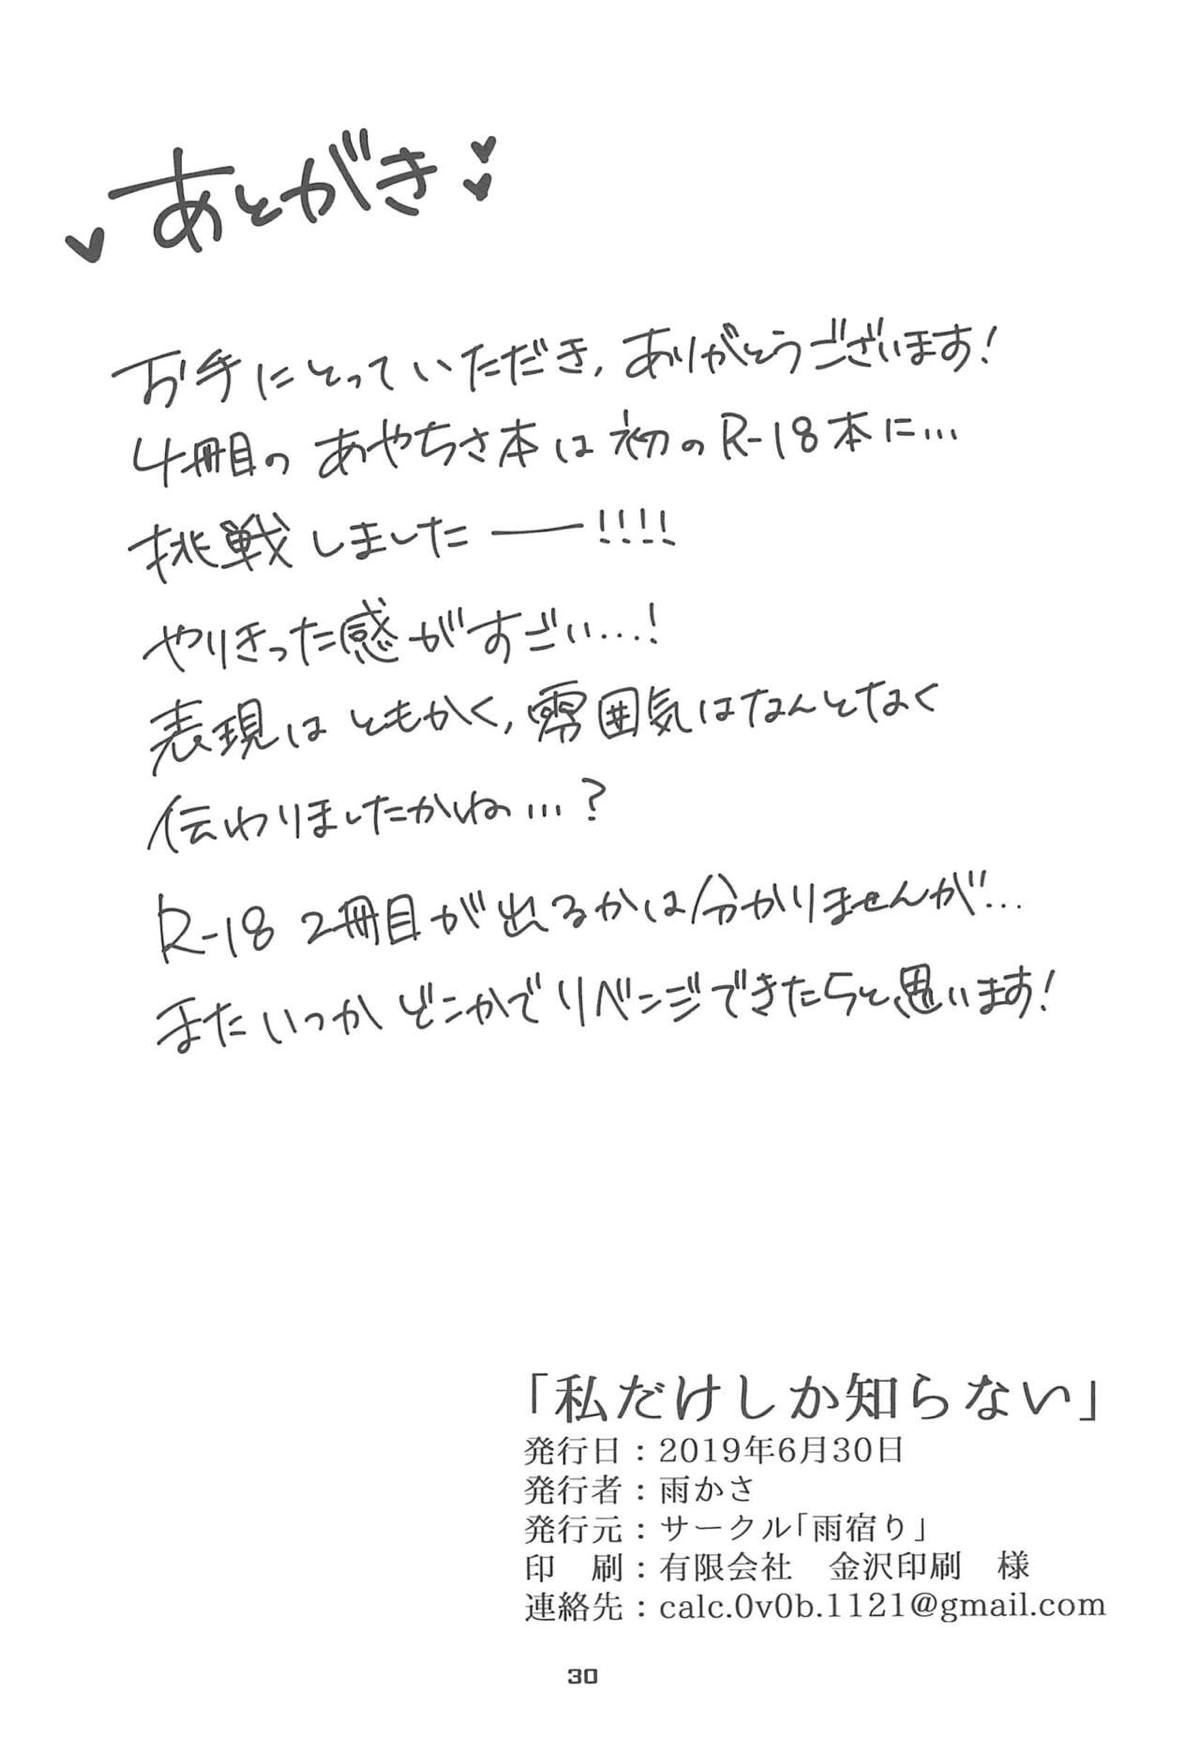 あとがき
お手にとっていただき,ありがとうございます!
4冊目の あやちさ本は初のR-18本に…
挑戦しましたーー!!!!
やりきった感がすごい…!
表現は ともかく,雰囲気はなんとなく
伝わりましたかね…?
R-18 2冊目が出るかは分かりませんが…
またいつか どこかでリベンジできたらと思います!
「私だけしか知らない」
発行日:2019年6月30日
発行者:雨かさ
発行元:サークル「雨宿り」
印 刷:有限会社 金沢印刷 様
連絡先:calc.0v0b.1121@gmail.com
30